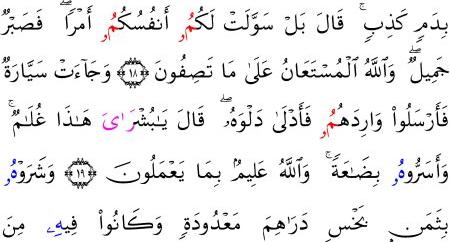 بِدَمٖ كَذِبٖۚ قَالَ بَلۡ سَوَّلَتۡ لَكُمُۥ أَنفُسُكُمُۥ أَمۡرٗاۖ فَصَبۡرٞ
جَمِيلٞۖ وَٱللَّهُ ٱلۡمُسۡتَعَانُ عَلَىٰ مَا تَصِفُونَ ١٨ وَجَآءَتۡ سَيَّارَةٞ
فَأَرۡسَلُواْ وَارِدَهُمُۥ فَأَدۡلَىٰ دَلۡوَهُۥۖ قَالَ يَٰبُشۡرَايَ هَٰذَا غُلَٰمٞۚ
وَأَسَرُّوهُۥ بِضَٰعَةٗۚ وَٱللَّهُ عَلِيمُۢ بِمَا يَعۡمَلُونَ ١٩ وَشَرَوۡهُۥ
بِثَمَنِۭ بَخۡسٖ دَرَٰهِمَ مَعۡدُودَةٖ وَكَانُواْ فِيهِۦ مِنَ